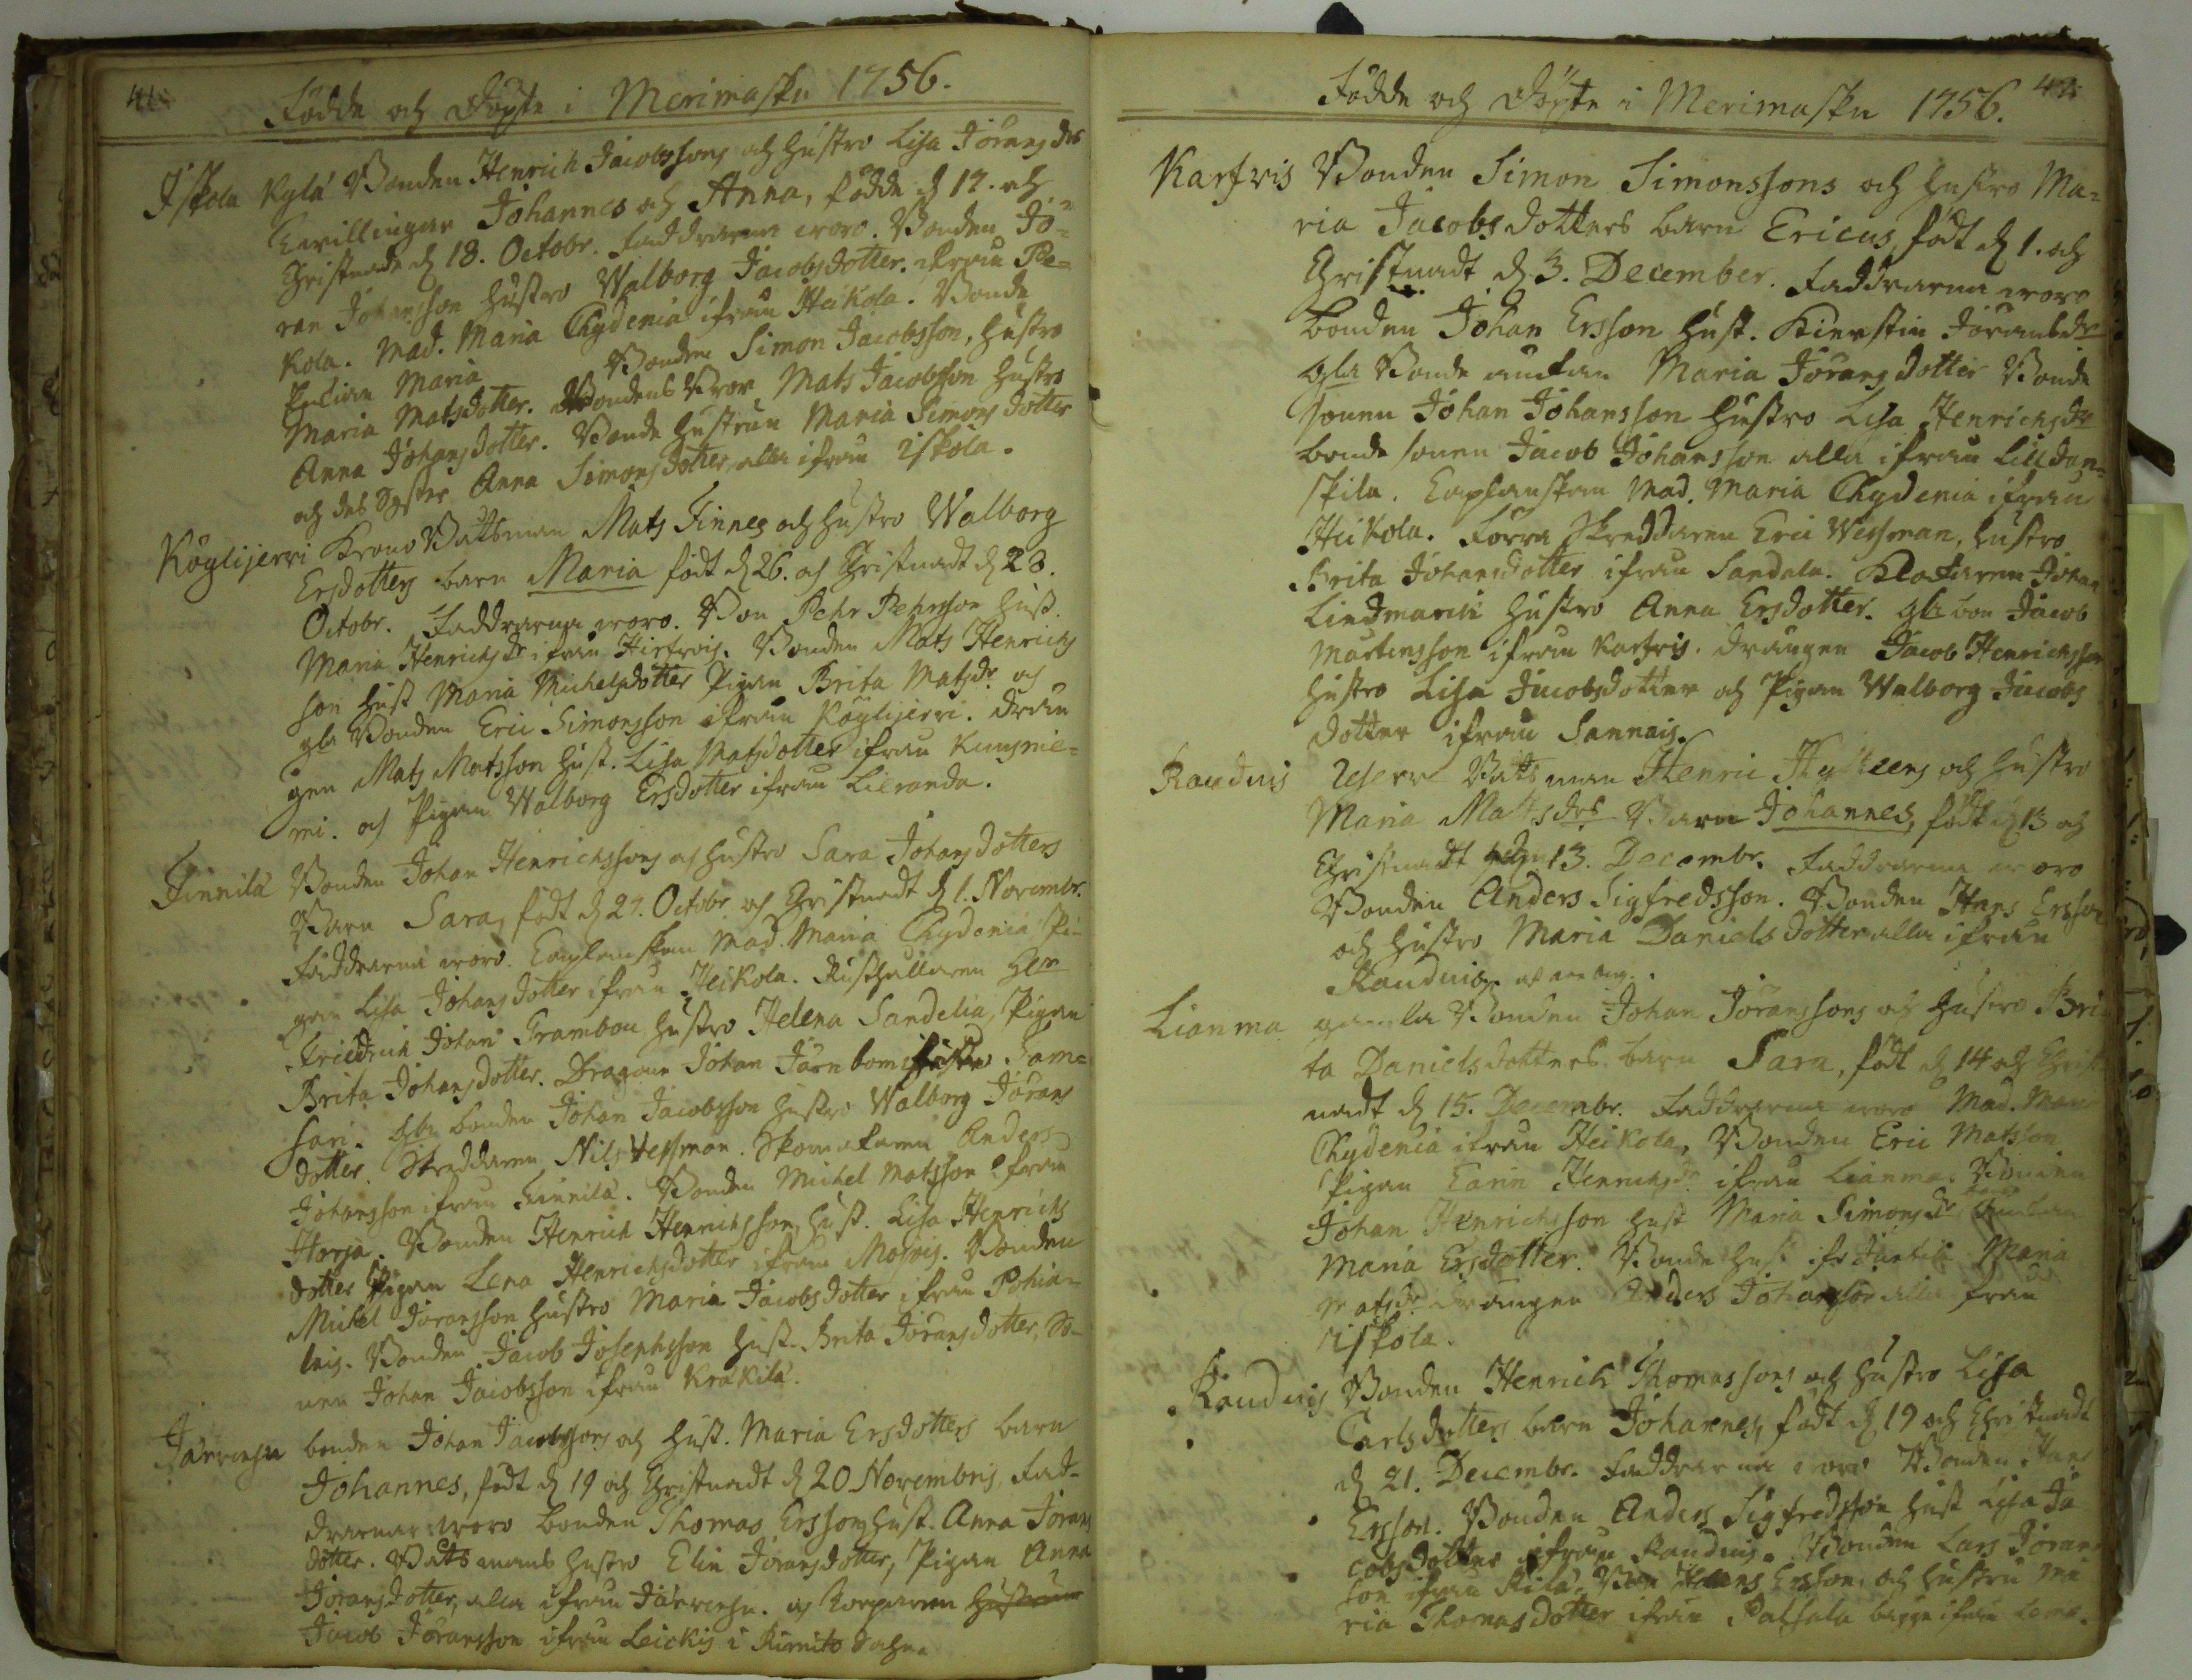 41.
Födde och Döpte i Merimasku 1756.
Iskola Kylä Bonden Henrich Jacobssons och hustro Lisa Jörans drs
Twillingar Johannes och Anna, födde d 17. och
Christnade d 18. Octobr. Faddrarna woro. Bonden Jö-
ran Johansson hustro Walborg Jacobsdotter. ifrån Pe-
kola. Mad. Maria Chydenia ifrån Heikola. Bonde
Maria Bonden Simon Jacobsson, hustro
Maria Matsdotter. Bondens Bror Mats Jacobsson hustro
Anna Johansdotter. Bonde hustrun Maria Simons dotter
och des Syster Anna Simonsdotter, alla ifrån Iskola.
Köylijerri Krono Båtsman Mats Finnes och hustro Walborg
Ersdotters barn Maria födt d 26. och Christnadt d 28.
Octobr. Faddrarna woro. Bon Pehr Pehrsson hust.
Maria Henrichsdr ifrån Hirfwois. Bonden Mats Henrichs
son hust Maria Michelsdotter Pigan Brita Matsdr och
gla Bonden Eric Simonsson ifrån Köylijerri. Drän
gen Mats Matsson hust. Lisa Matsdotter ifrån Kungnie-
mi. och Pigan Walborg Ersdotter ifrån Lieranda.
Finnilä Bonden Johan Henrichssons och hustro Sara Johansdotters
Barn Sara, födt d 27. Octobr och Christnadt d 1. Novembr.
Faddrarna woro. Caplanskan Mad. Maria Chydenia Pi-
gan Lisa Johansdotter ifrån Heikola. Rusthållaren Hr
Friedrich Johan Grambou, hustro Helena Sandelia, Pigan
Brita Johansdotter. Dragoun Johan Järnbom hustro Sam-
sari. Gla bonden Johan Jacobsson hustro Walborg Jörans
dotter. Skreddaren Nils Wessman. Skomakaren Anders
Johansson ifrån Finnilä. Bonden Michel Matsson ifrån
Horja. Bonden Henrich Henrichsson, hust. Lisa Henrichs
dotter Pigan Lena Henrichsdotter ifrån Moisois. Bonden
Michel Jöransson hustro Maria Jacobsdotter ifrån Pohia-
lais. Bonden Jacob Josephsson hust. Brita Jöransdotter, So-
nen Johan Jacobsson ifrån Kräkilä.
Järwensu bonden Johan Jacobssons och hust. Maria Ersdotters barn
Johannes, födt d 19 och Christnadt d 20 Novembris. Fad-
drarnar woro bonden Thomas Ersson, hust. Anna Jörans
dotter. Båtsmans hustro Elin Jöransdotter, Pigan Anna
Jöransdotter, alla ifrån Järwensu. och Korparen hustrun
Jacob Jöransson ifrån Leickis i Rimito Sokn.
42.
Födde och Döpte i Merimasku 1756.
Karfvis Bonden Simon Simonssons och hustro Ma-
ria Jacobs dotters barn Ericus, födt d 1. och
Christnadt d 3. December. Faddrarna woro
bonden Johan Ersson hust. Kierstin Jöransdr
gla Bonde änkan Maria Jörans dotter Bonde
sonen Johan Johansson hustro Lisa Henrichsdr
bonde sonen Jacob Johansson alla ifrån Lilldan-
skila. Caplanskan Mad. Maria Chydenia ifrån
Heikola. Förra Skreddaren Eric Wessman, hustro
Brita Johansdotter ifrån Sandala. Klockaren Johan
Lindmarck hustro Anna Ersdotter. gla bon Jacob
Mårtensson ifrån Karfvis. Drängen Jacob Henrichsson
hustro Lisa Jacobsdotter och Pigan Walborg Jacobs
dotter ifrån Sannais.
Rauduis Båtsman Henric Hylteens och hustro
Maria Mattsdrs Barn Johannes, födt d 13 och
Christnadt den 13. Decembr. Faddrarna woro
Bonden Anders Sigfredsson. Bonden Hans Ersson
och hustro Maria Daniels dotter alla ifrån
Rauduis.
Lianma gamla Bonden Johan Jöranssons och hustro Bri
ta Danielsdotters barn Sara, födt d 14 och Christ
nadt d 15. Decembr. Faddrarna woro Mad. Maria
Chydenia ifrån Heikola, Bonden Eric Matsson
Pigan Carin Henrichsdr ifrån Lianma. Bonden
Johan Henrichsson hust Maria Simonsdr
Maria Ersdotter. Bonde hust Maria
Matsdr drängen Anders Johansson alla ifrån
Iskola.
Rauduis Bonden Henrich Thomassons och hustro Lisa
Carlsdotters barn Johannes, födt d 19 och Christnadt
d 21. Decembr. Faddrarna woro Bonden Hans
Ersson. Bonden Anders Sigfredsson hust Lisa Ja
cobsdotter ifrån Rauduis. Bonden Lars Jörans
son ifrån Kilä. Bon Hans Ersson och hustru Ma
ria Thomasdotter ifrån Palsala